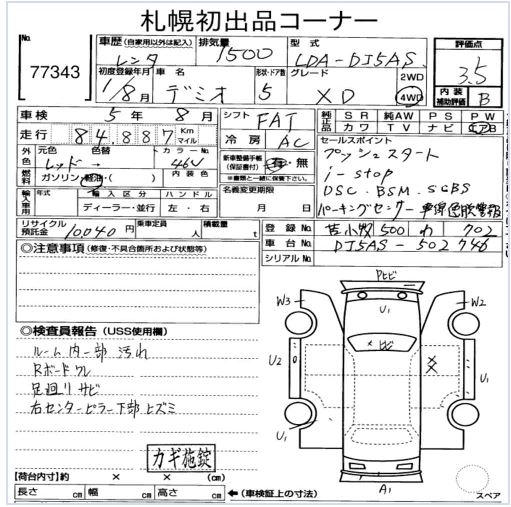 札幌初出品コーナー
No. 77343
車歴 (自家用以外は記入) レンタ
排気量 1500
型式 LDA-DJ5AS
評価点 3.5
初度登録年月 /8月
車名 デミオ
形状・ドア数 5
グレード XD
2WD
4WD
内装補助評価 B
車検 5年8月
シフト FAT
純正品 SR 純AW PS PW
カワ TV ナビ エアB
走行 84,887 Km マイル
冷房 AC
セールスポイント
プッシュスタート
i-stop
DSC.BSM.SCBS
パーキングセンサー
外色 元色 色替 カラーNo. 内装色
レッド→ 46V
新車整備手帳 (保証書付) 有・無
※書類と一緒に保管して下さい。
燃料 ガソリン・軽油・( )
名義変更期限 月 日
輸入車用 年式 輸入区分 ハンドル
ディーラー・並行 左・右
リサイクル預託金 10040円
乗車定員 人
積載量 t
登録No. 苫小牧 500 わ 702
車台No. DJ5AS-502746
シリアルNo.
◎注意事項 (修復・不具合箇所および状態等)
◎検査員報告 (USS使用欄)
ルーム内一部汚れ
Rボードワレ
足廻りサビ
右センターピラー下部ヒズミ
カギ施錠
Pヒビ
W3
U1
W2
ヒビ
U2
U1
A1
スペア
【荷台内寸】約 × × (cm)
長さ cm 幅 cm 高さ cm ←(車検証上の寸法)